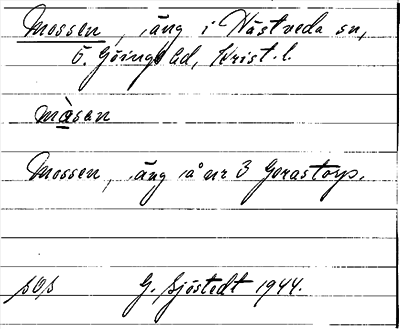 Mossen, äng i Nästveda sn,
Ö. Göinge hd, Krist. l.
mòsan
Mossen, äng å nr 3 Gorastorp.
sos G. Sjöstedt 1944.